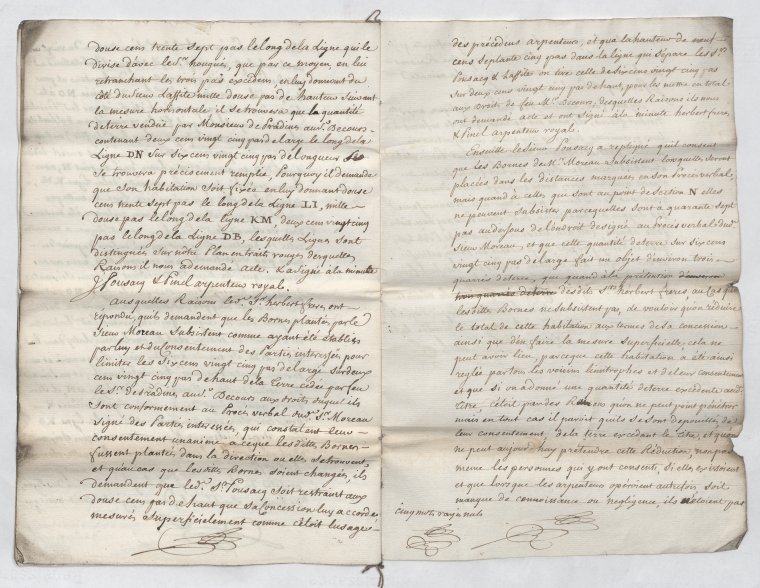 douse cens trente sept pas le long de la Ligne qui le
divise d'avec led. Sr. houques, que par ce moyen, en lui
retranchant les trois pas excédens, en luy donnant du
côté du Sieur Laffite mille douse pas de hauteur Suivant
la mesure horisontale il se trouvera que la quantité
de terre vendue par Monsieur de Pradines aud. Sr. Becours
contenant deux cens vingt cinq pas de large le long de la
Ligne DN sur Six cens vingt cinq pas de longueur
Se trouvera précisement remplie, Pourquoy il demande
que Son habitation Soit fixée en luy donnant douse
cens trente sept pas le long de la Ligne LI, mille
douse pas le long de la ligne KM, deux cens vingt cinq
pas le long de la Ligne DB, lesquelles Lignes sont
distinguées Sur nôtre Plan en traits rouges desquelles
Raisons il nous a demandé acte, et a Signé a la minute
J. Pousacq & Pinel arpenteur royal.
Ausquelles Raisons led. Sr. herbert freres ont
répondu, qu'ils demandent que les Bornes plantées par le
Sieur Moreau Subsistent comme ayant été établies
par luy et du Consentement des Parties interessées pour
limiter les Six cens vingt cinq pas de large Sur deux
cens vingt cinq pas de haut de la terre cédée par feu
le Sr. de Pradines aud. Sr. Becours aux droits duquel ils
Sont conformement au Procès verbal dud. Sr. Moreau
Signé des Parties interessées, qui constatent leur
consentement unanime a ce que lesdittes Bornes
fussent plantées dans la direction ou elles se trouvent,
et qu'au cas que lesdittes Bornes Soient changées, ils
demandent que led. Sr. Pousacq Soit restraint aux
douse cens pas de haut que Sa Concession luy accorde
mesurés Superficielement comme c'étoit l'usage
des précédens arpenteurs, et qu'a la hauteur de neuf
cens septante cinq pas dans la ligne qui Sépare les Srs.
Pousacq & Laffite on tire celle de Six cens vingt cinq pas
Sur deux cens vingt cinq pas de haut, pour les mettre en total
aux Droits de feu Mr. Becours, desquelles Raisons ils nous
ont demandé acte et ont Signé a la minute herbert freres,
& Pinel arpenteur royal.
Ensuitte le Sieur Pousacq a repliqué qu'il consent
que les Bornes de Mr. Moreau Subsistent lorsquelles seront
placées dans les distances marquées en Son Procès verbal,
mais quand à celles, qui sont au point de Section N elles
ne peuvent Subsister parcequelles sont a quarante sept
pas au desous de l'endroit designé au Procès verbal dud.
Sieur Moreau, et que cette quantité de terre sur Six cens
vingt cinq pas de large fait un objet d'environ trois
quarés de terre, que quand à la prétention d'environ
trois quarés de terre desdits Srs. herbert freres au Cas que
lesdittes Bornes ne subsistent pas, de vouloir qu'on réduise
le total de cette habitation aux termes de sa concession
ainsi que d'en faire la mesure Superficielle, cela ne
peut avoir lieu, parceque cette habitation a été ainsi
reglée par tous les voisins limitrophes et de leur consentement
et que si on a donné une quantité de terre excedente aud.
titre, c'étoit par des Raisons qu'on ne peut point pénétrer
mais en tout cas il paroit qu'ils se sont depouillés, de
leur consentement, de la terre excedant le titre, et qu'on
ne peut aujourd'huy prétendre cette Réduction, non pas
meme les personnes qui y ont consenti, si elles existoient
et que lorsque les arpenteurs opéroient autrefois soit
manque de connoissance ou negligence, ils n'étoient pas
Cinq mots rayés nuls